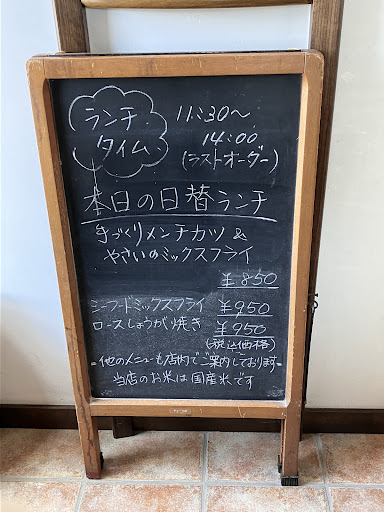 ランチ
タイム
11:30〜
14:00
(ラストオーダー)
本日の日替ランチ
手づくりメンチカツ &
やさいのミックスフライ
¥850
シーフードミックスフライ ¥950
ロースしょうがり焼き ¥950
(税込価格)
-他のメニューも店内でご案内しております-
当店のお米は国産米です